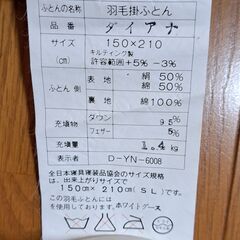 ふとんの名称 羽毛掛ふとん
品番 ダイアナ
サイズ 150×210
キルティング製
(cm) 許容範囲+5% -3%
ふとん側 表地 絹50% 綿50%
裏地 綿100%
充填物 ダウン 95%
フェザー 5%
充填量 1.4kg
表示者 D-YN-6008
全日本寝具寝装品協会のサイズ規格
は、出来上がりサイズで
150cm×210cm(SL)です。
この羽毛ふとんには
を使用しております。ホワイトグース